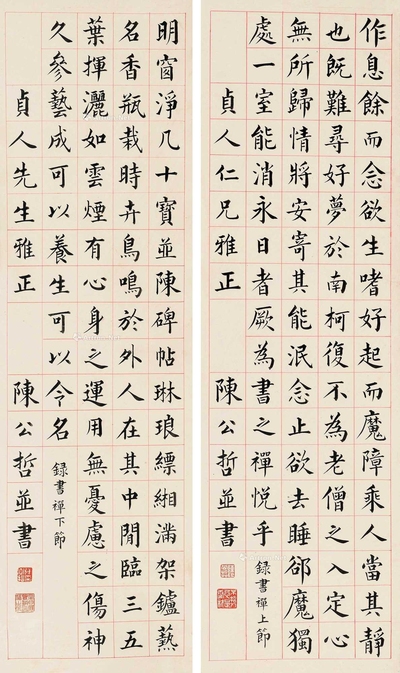 作息餘而念欲生嗜好起而魔障乘人當其靜
也既難尋好夢於南柯復不為老僧之入定心
無所歸情將安寄其能泯念止欲去睡郤魔獨
處一室能消永日者厥為書之禪悅乎 錄書禪上節
貞人仁兄雅正 陳公哲並書
明窗淨几十寶並陳碑帖琳琅縹緗滿架鑪爇
名香瓶栽時卉鳥鳴於外人在其中閒臨三五
葉揮灑如雲煙有心身之運用無憂慮之傷神
久參藝成可以養生可以令名 錄書禪下節
貞人先生雅正 陳公哲並書